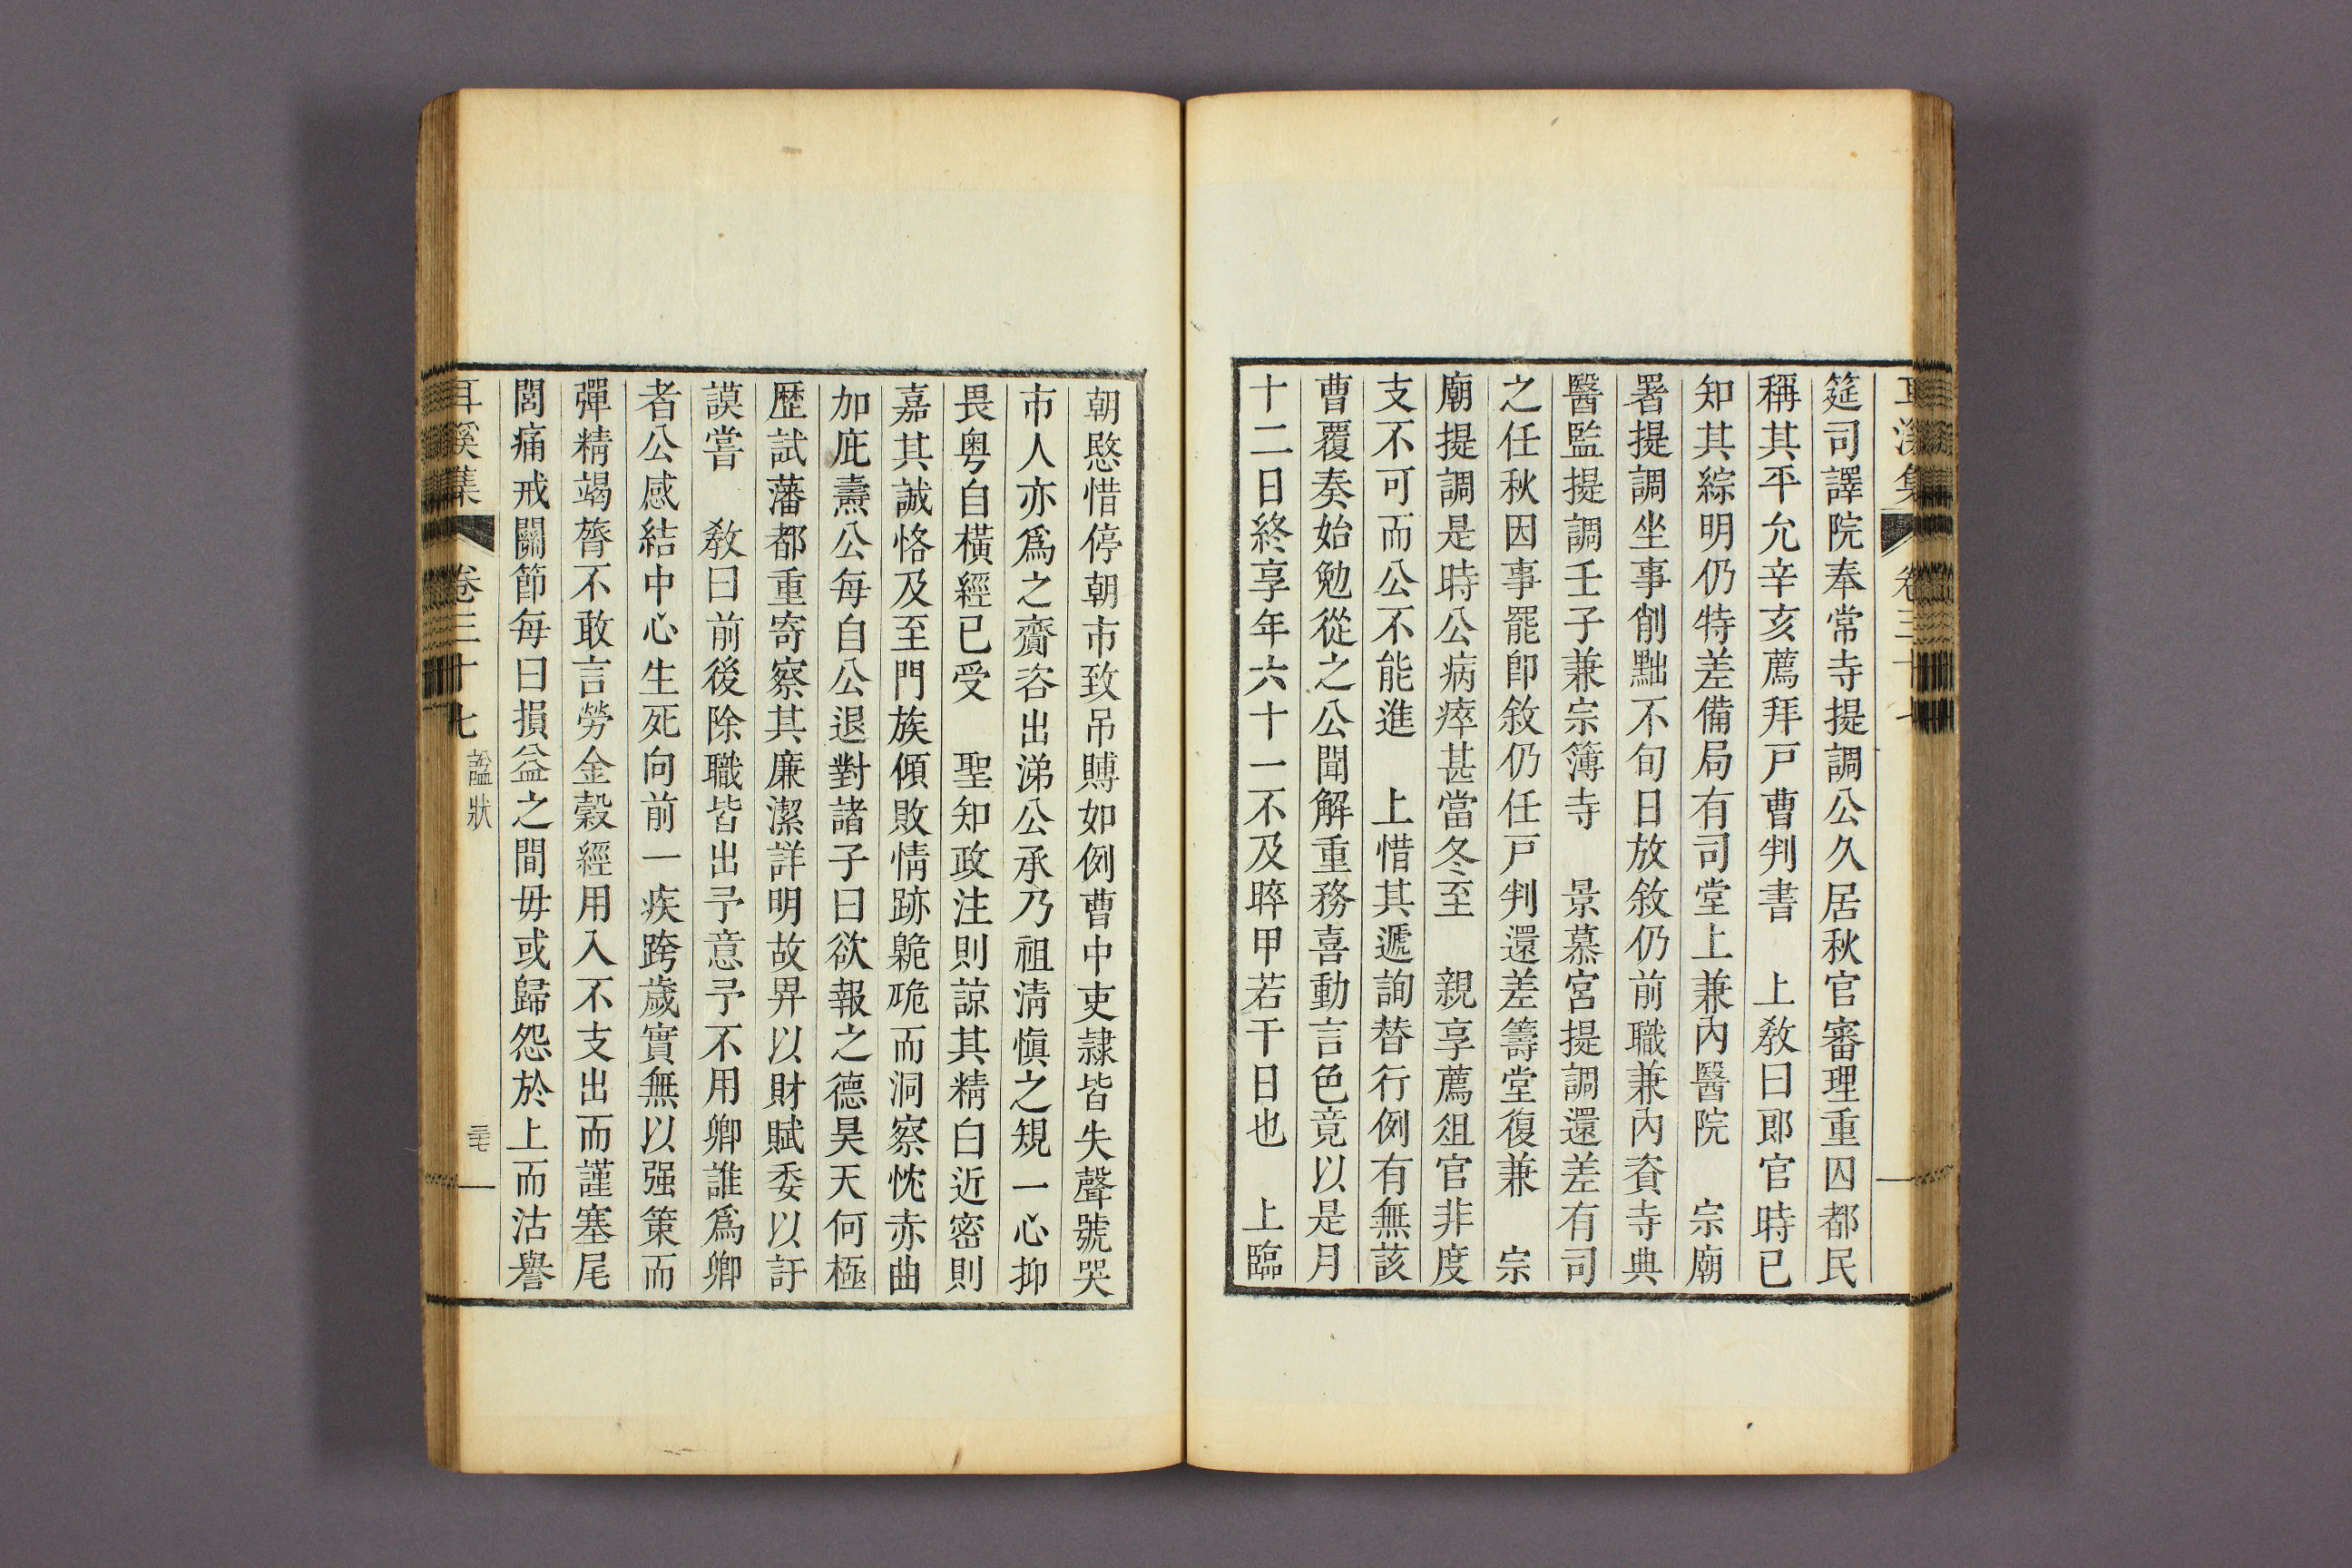 耳溪集 卷三十七
筵司譯院奉常寺提調公久居秋官審理重囚都民
稱其平允辛亥薦拜戶曹判書 上敎曰郎官時已
知其綜明仍特差備局有司堂上兼內醫院 宗廟
署提調坐事削黜不旬日放敘仍前職兼內資寺典
醫監提調壬子兼宗簿寺 景慕宮提調還差有司
之任秋因事罷卽敘仍任戶判還差籌堂復兼 宗
廟提調是時公病瘁甚當冬至 親享薦俎官非度
支不可而公不能進 上惜其遞詢替行例有無該
曹覆奏始勉從之公聞解重務喜動言色竟以是月
十二日終享年六十一不及晬甲若干日也 上臨
朝愍惜停朝市致吊賻如例曹中吏隷皆失聲號哭
市人亦爲之齎咨出涕公承乃祖淸愼之規一心抑
畏粤自橫經已受 聖知政注則諒其精白近密則
嘉其誠恪及至門族傾敗情跡臲卼而洞察忱赤曲
加庇燾公每自公退對諸子曰欲報之德昊天何極
歷試藩都重寄察其廉潔詳明故畀以財賦委以訏
謨嘗 敎曰前後除職皆出予意予不用卿誰爲卿
者公感結中心生死向前一疾跨歲實無以强策而
彈精竭膂不敢言勞金穀經用入不支出而謹塞尾
閭痛戒關節每曰損益之間毋或歸怨於上而沽譽
耳溪集 卷三十七 諡狀 三七